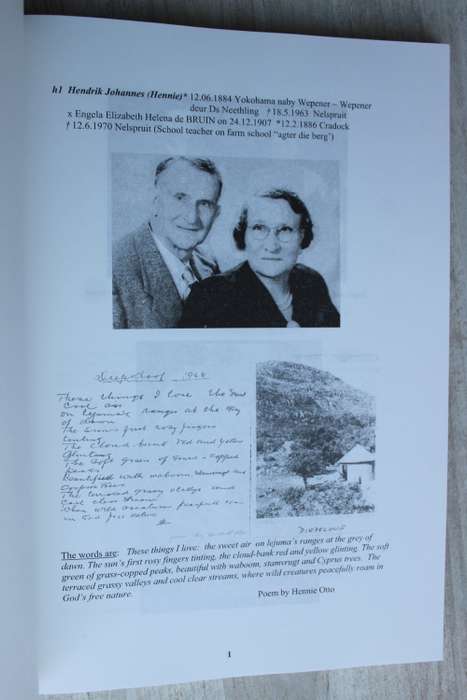 h1 Hendrik Johannes (Hennie)* 12.06.1884 Yokohama naby Wepener – Wepener
deur Ds Neethling † 18.5.1963 Nelspruit
x Engela Elizabeth Helena de BRUIN on 24.12.1907 *12.2.1886 Cradock
† 12.6.1970 Nelspruit (School teacher on farm school "agter die berg')
These things I love the sweet
cool air
on lejuma's ranges at the grey
of dawn
The sun's first rosy fingers
tinting
The cloud bank red and yellow
glinting
The soft green of grass-copped
peaks
Beautified with waboom, stamvrugt and
Cyprus trees
The terraced grassy valleys and
cool clear streams
Where wild creatures peacefull roam
in God's free nature
The words are: These things I love: the sweet air on lejuma's ranges at the grey of
dawn. The sun's first rosy fingers tinting, the cloud-bank red and yellow glinting. The soft
green of grass-copped peaks, beautiful with waboom, stamvrugt and Cyprus trees. The
terraced grassy valleys and cool clear streams, where wild creatures peacefully roam in
God's free nature.
Poem by Hennie Otto
1